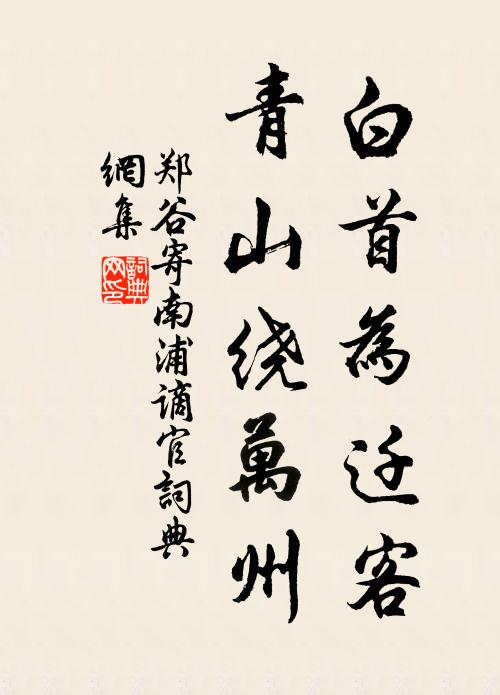 白首為迁客
青山绕萬州
郑谷寄南浦谪官詞典
網集
詞典
网印